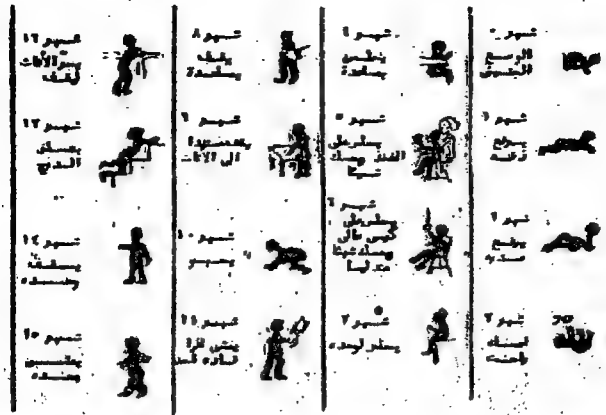 شهر ٠
الوضع
الجنيني
شهر ١
يرفع
ذقنه
شهر ٢
يرفع
صدره
شهر ٣
شهر ٤
يجلس
بمساعدة
شهر ٥
يجلس على
الفخذ ويمسك
شيئا
شهر ٦
يجلس على
كرسي عالي
ويمسك شيئا
متدليا
شهر ٧
يجلس لوحده
شهر ٨
يقف
بمساعدة
شهر ٩
الى الأثاث
شهر ١٠
يحبو
شهر ١١
يمشي اذا
قاده أحد
شهر ١٢
يجر الأثاث
ليقف
شهر ١٣
يتسلق
الدرج
شهر ١٤
يقف
وحده
شهر ١٥
يمشي
وحده